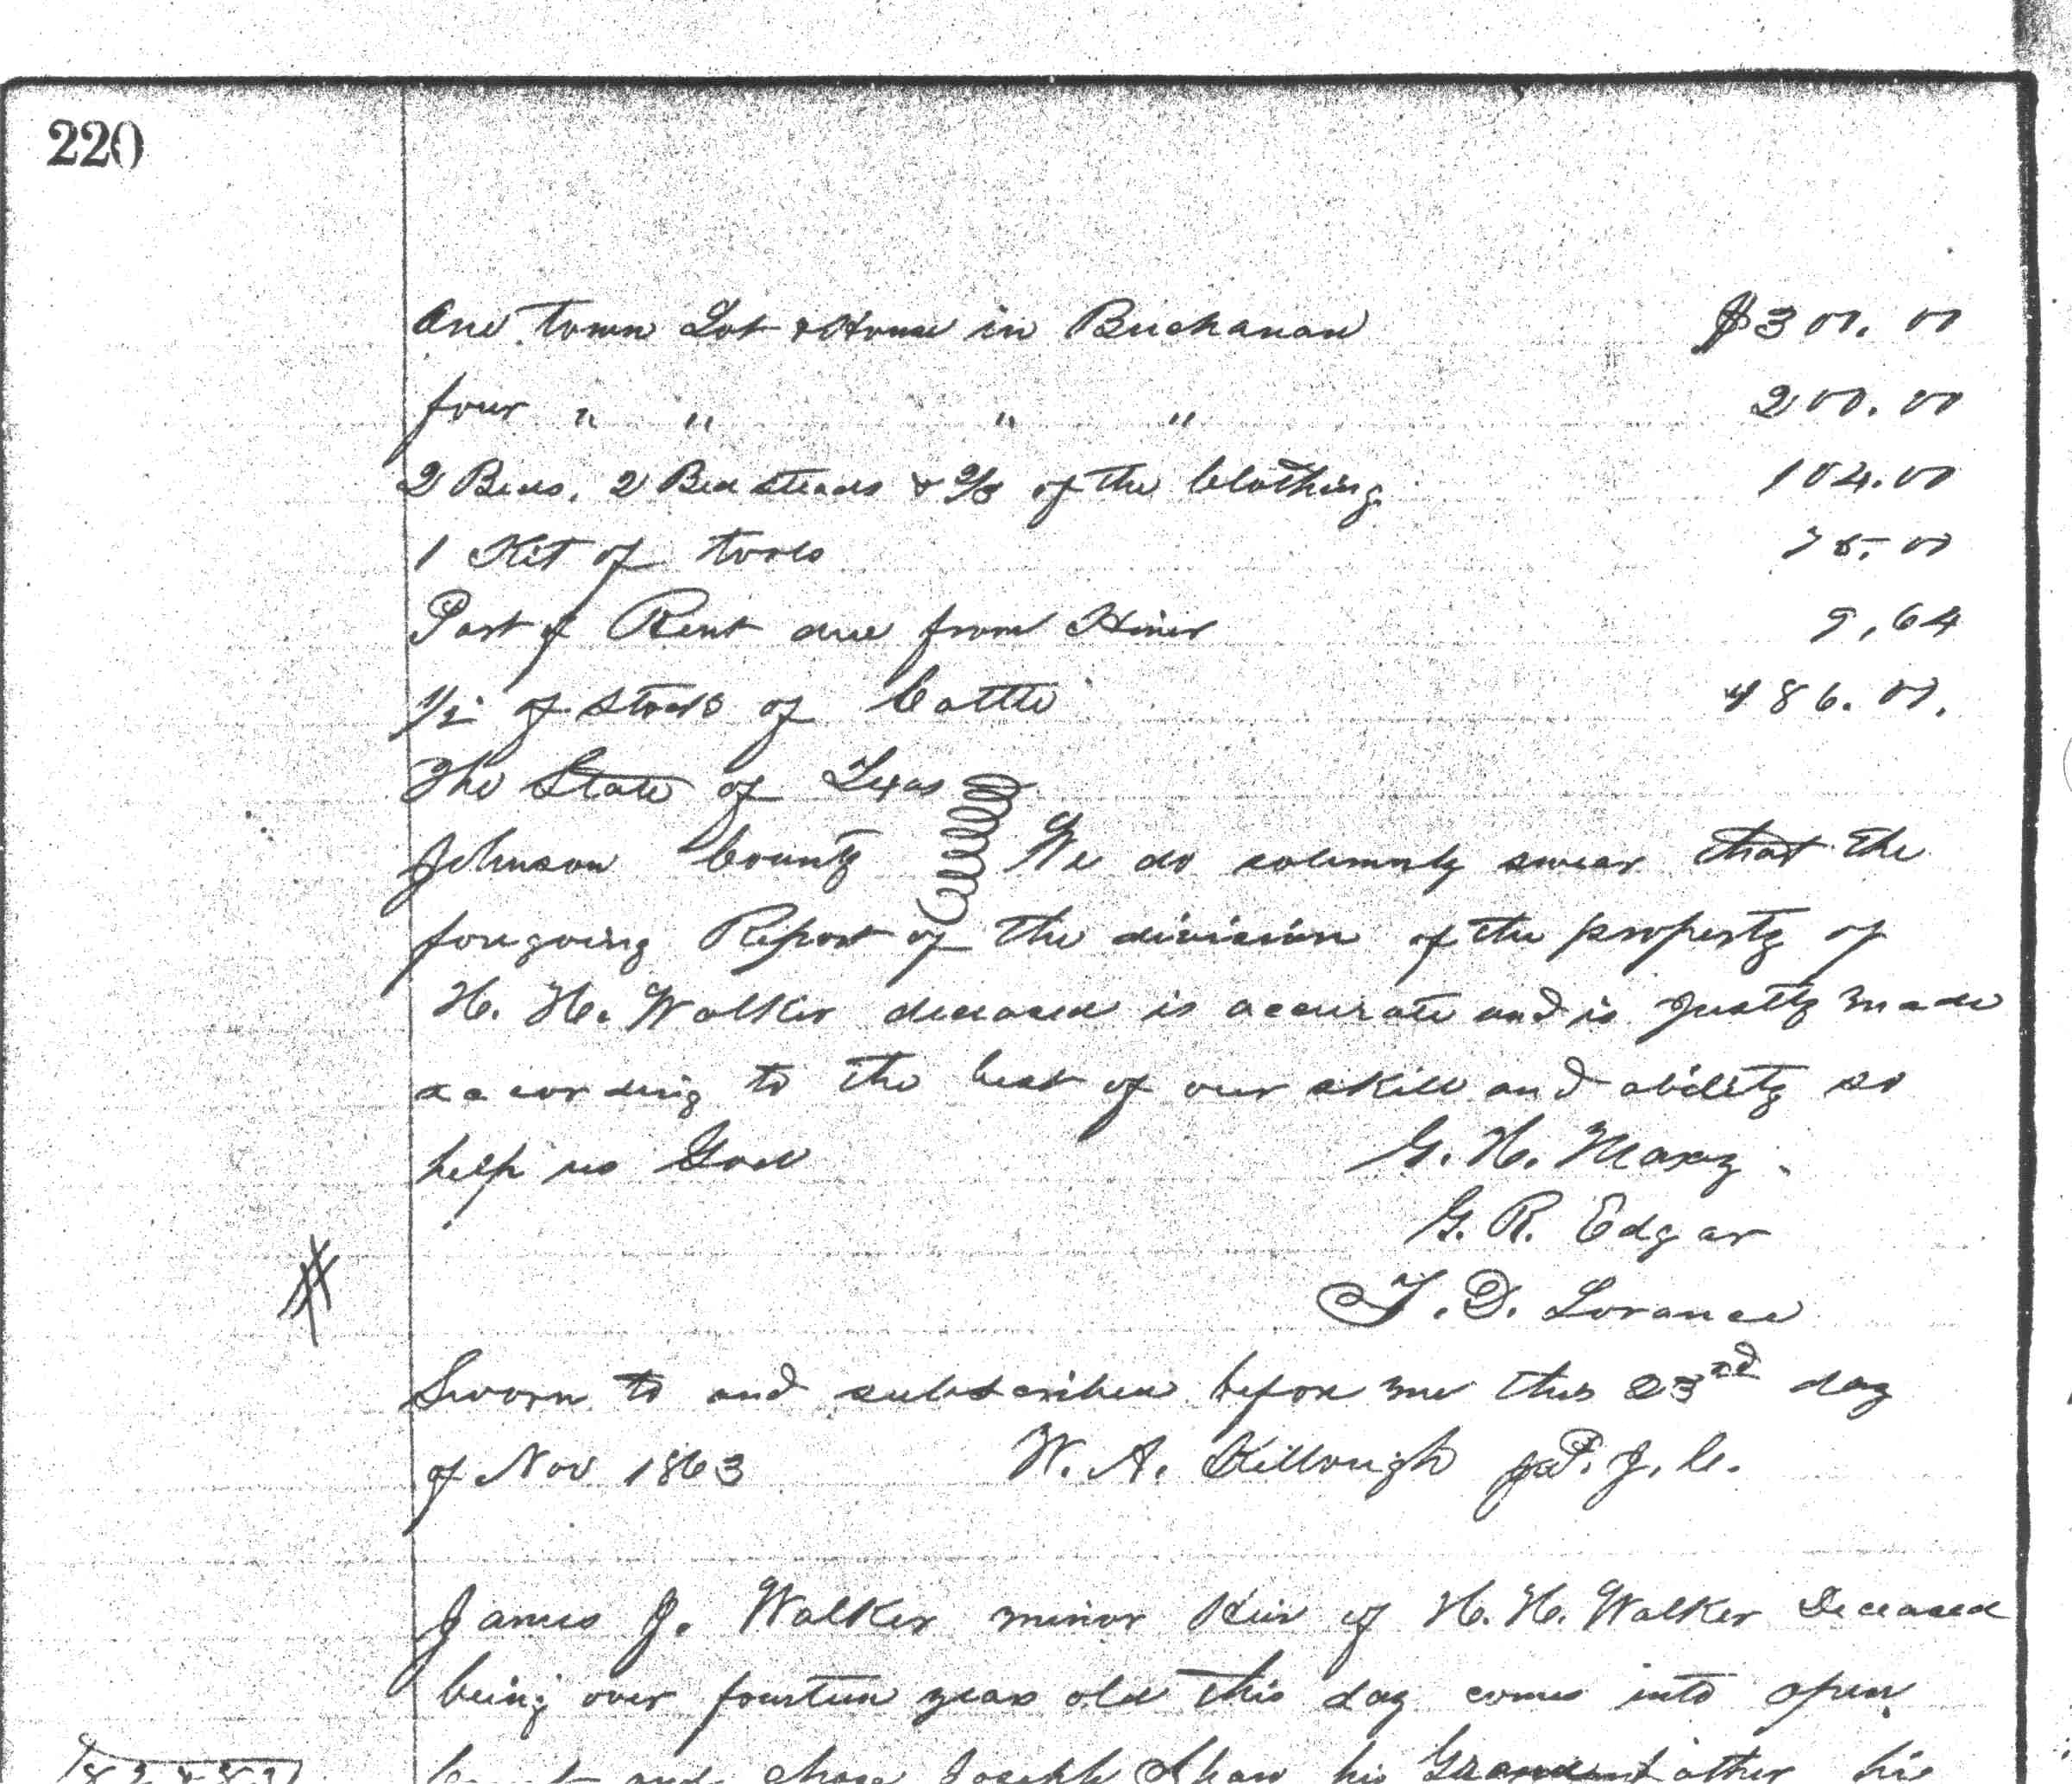 220
One town Lot & House in Buchanan $300.00
four " " " " 200.00
2 Beds, 2 Bed steads & 2/3 of the Clothing 104.00
1 Kit of tools 75.00
Part of Rent due from Hiner 9,64
1/2 of stock of Cattle 486.00.
The State of Texas
Johnson County We do solemnly swear that the
foregoing Report of the division of the property of
H. H. Walker deceased is accurate and is Justly made
according to the best of our skill and ability so
help us God G. H. Maxy
G. R. Edgar
#
T. D. Lorance
Sworn to and subscribed before me this 23rd day
of Nov 1863 W. A. Killough P. J. C.
James J. Walker minor Heir of H. H. Walker Deceased
being over fourteen years old this day comes into open
Court and chose Joseph Shaw his father his